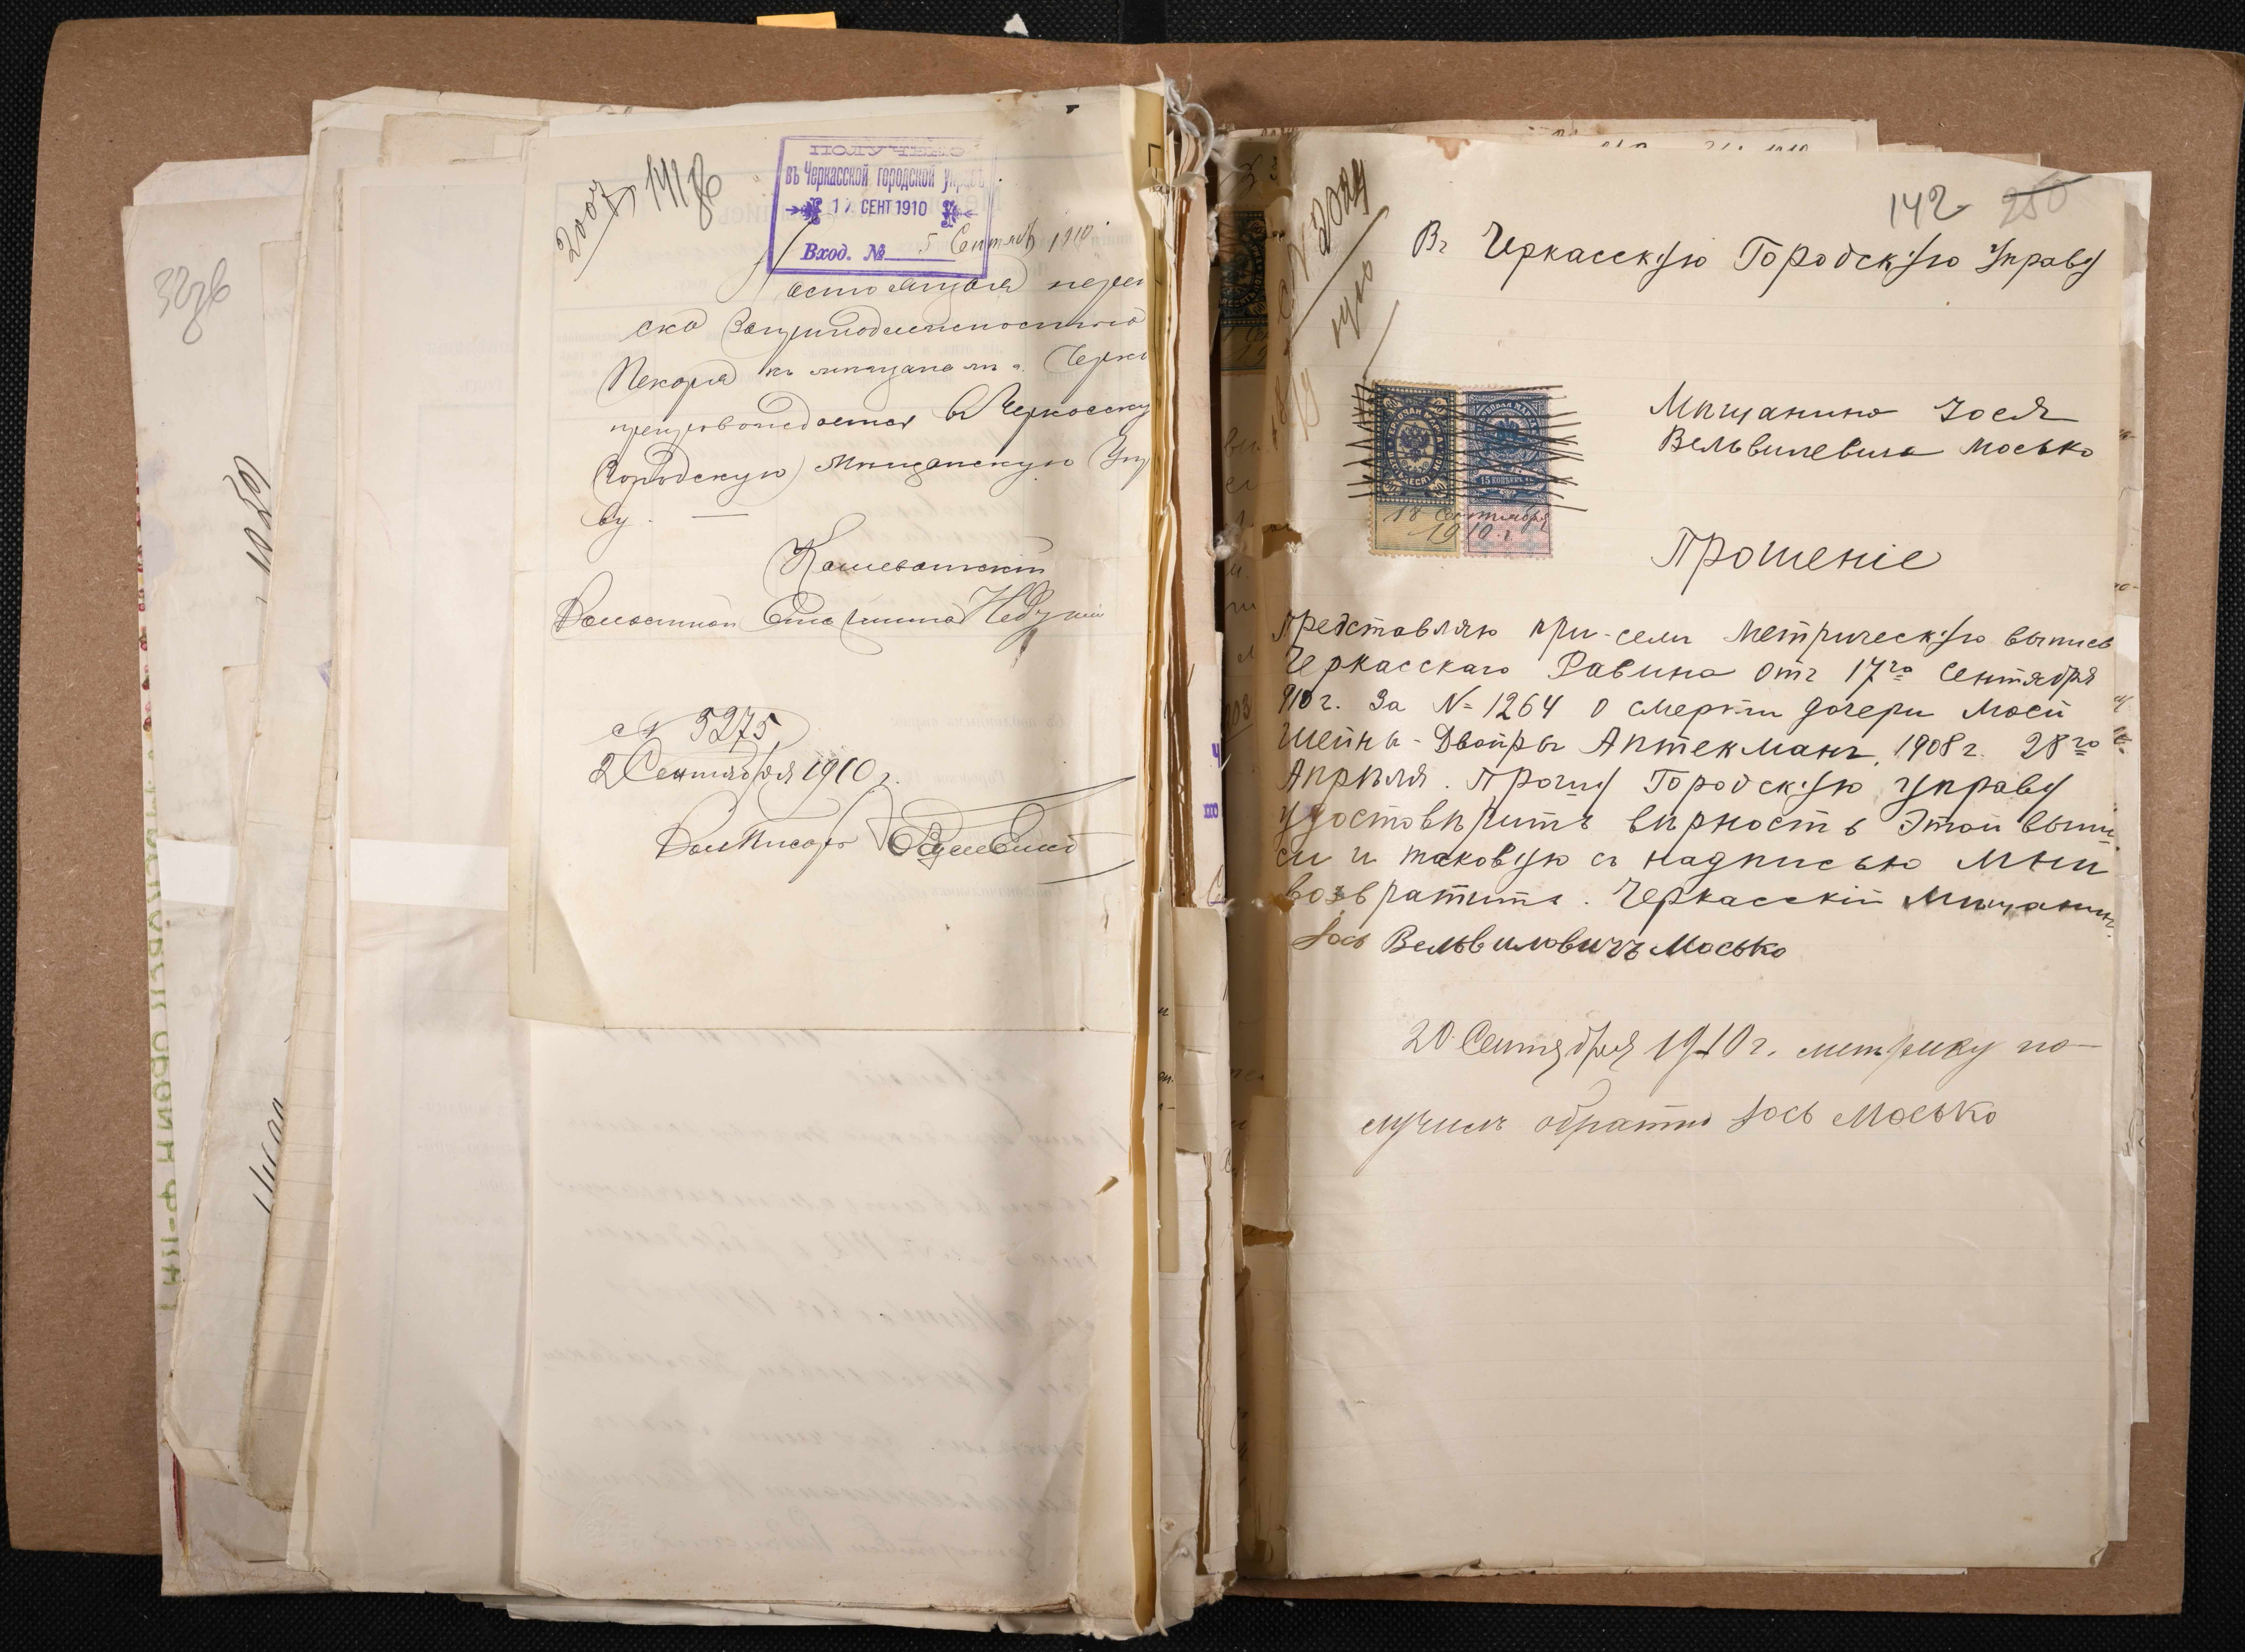 32 зв
10 259
2007, 14/IX
ПОЛУЧЕНО
въ Черкасской городской управѣ
17 СЕНТ 1910
Вход. №
5 Сентябр 1910
астоящая переп
ска
Пекаря къ мѣщанамъ г. Черка
препровождается въ Черкасску
Городскую Мѣщанскую Упр
ву. —
Волостной Старшина
№ 5275
2 Сентября 1910 г.
Вол Писарь
№ 2024
142 250
Въ Черкасскую Городскую Управу
Мѣщанина Іося
Вельвилевича Моська
15 КОПѢЕКЪ
18 Сентября
1910 г
Прошеніе
Представляю при-семъ Метрическую выпись
Черкасскаго Равина отъ 17го Сентября
910 г. За № 1264 о смерти дочери моей
Шейны-Двойры Аптекманъ, 1908 г. 28го
Апрѣля. Прошу Городскую Управу
удостовѣрить вѣрность этой выпи
си и таковую съ надписью мнѣ
возвратить. Черкасскій Мѣщанинъ
Іось Вельвиловичъ Мосько
20 Сентября 1910 г. метрику по-
лучилъ обратно Іось Мосько